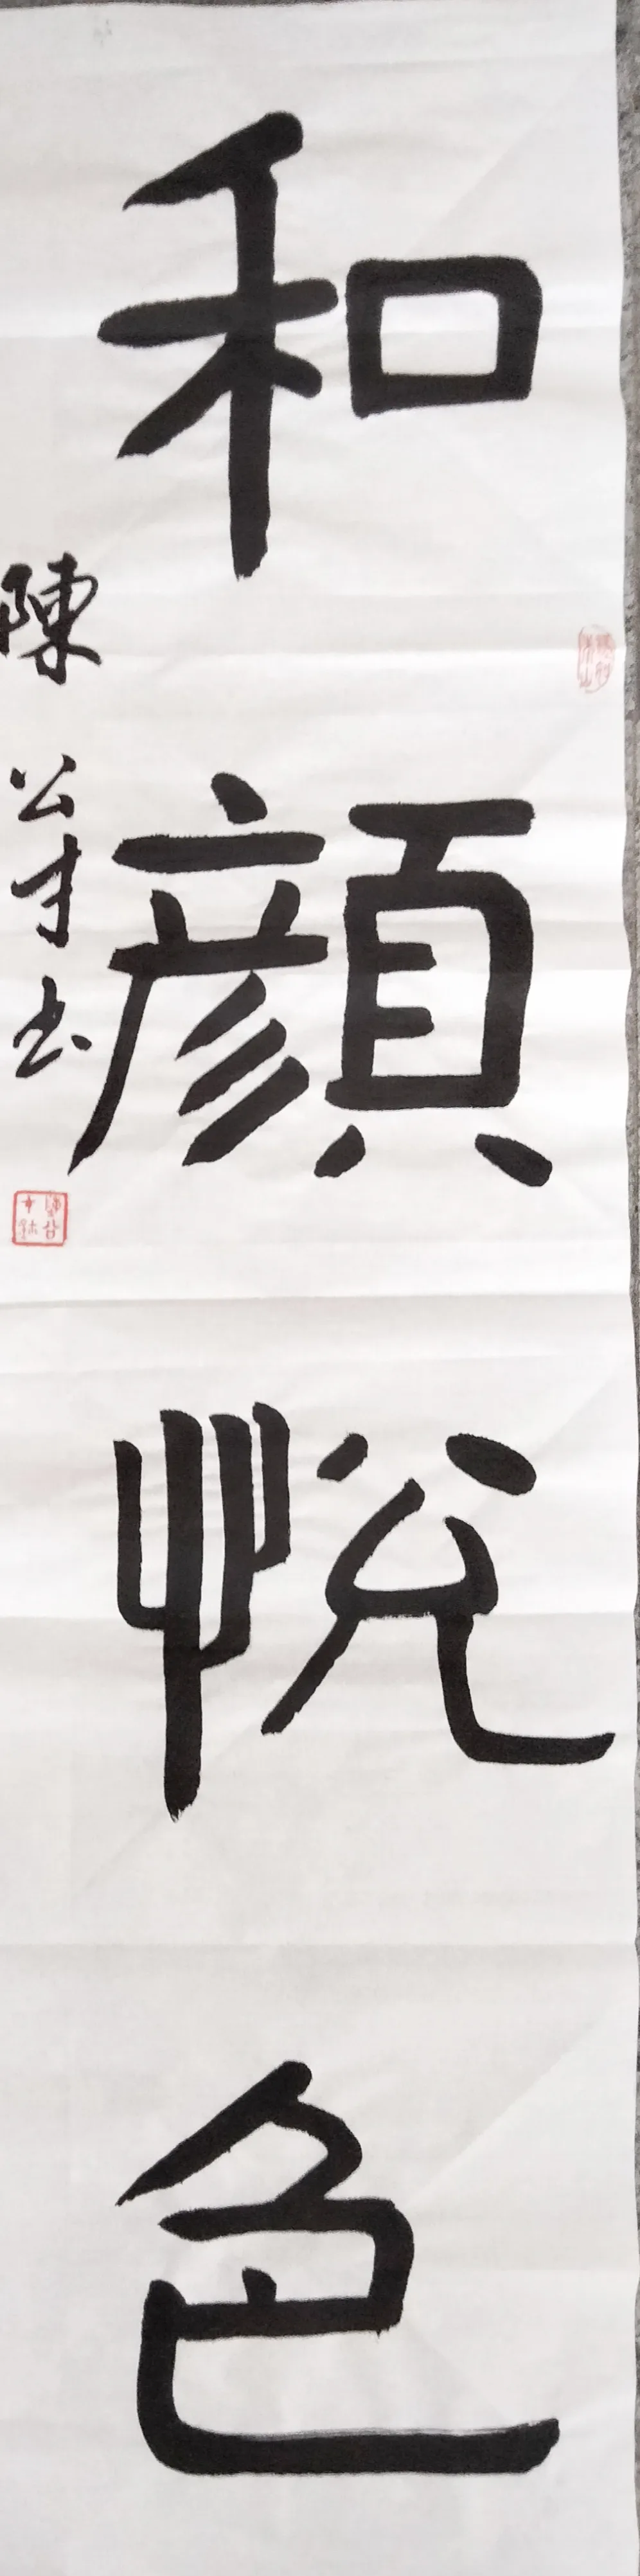 和顔悅色
陳公才书